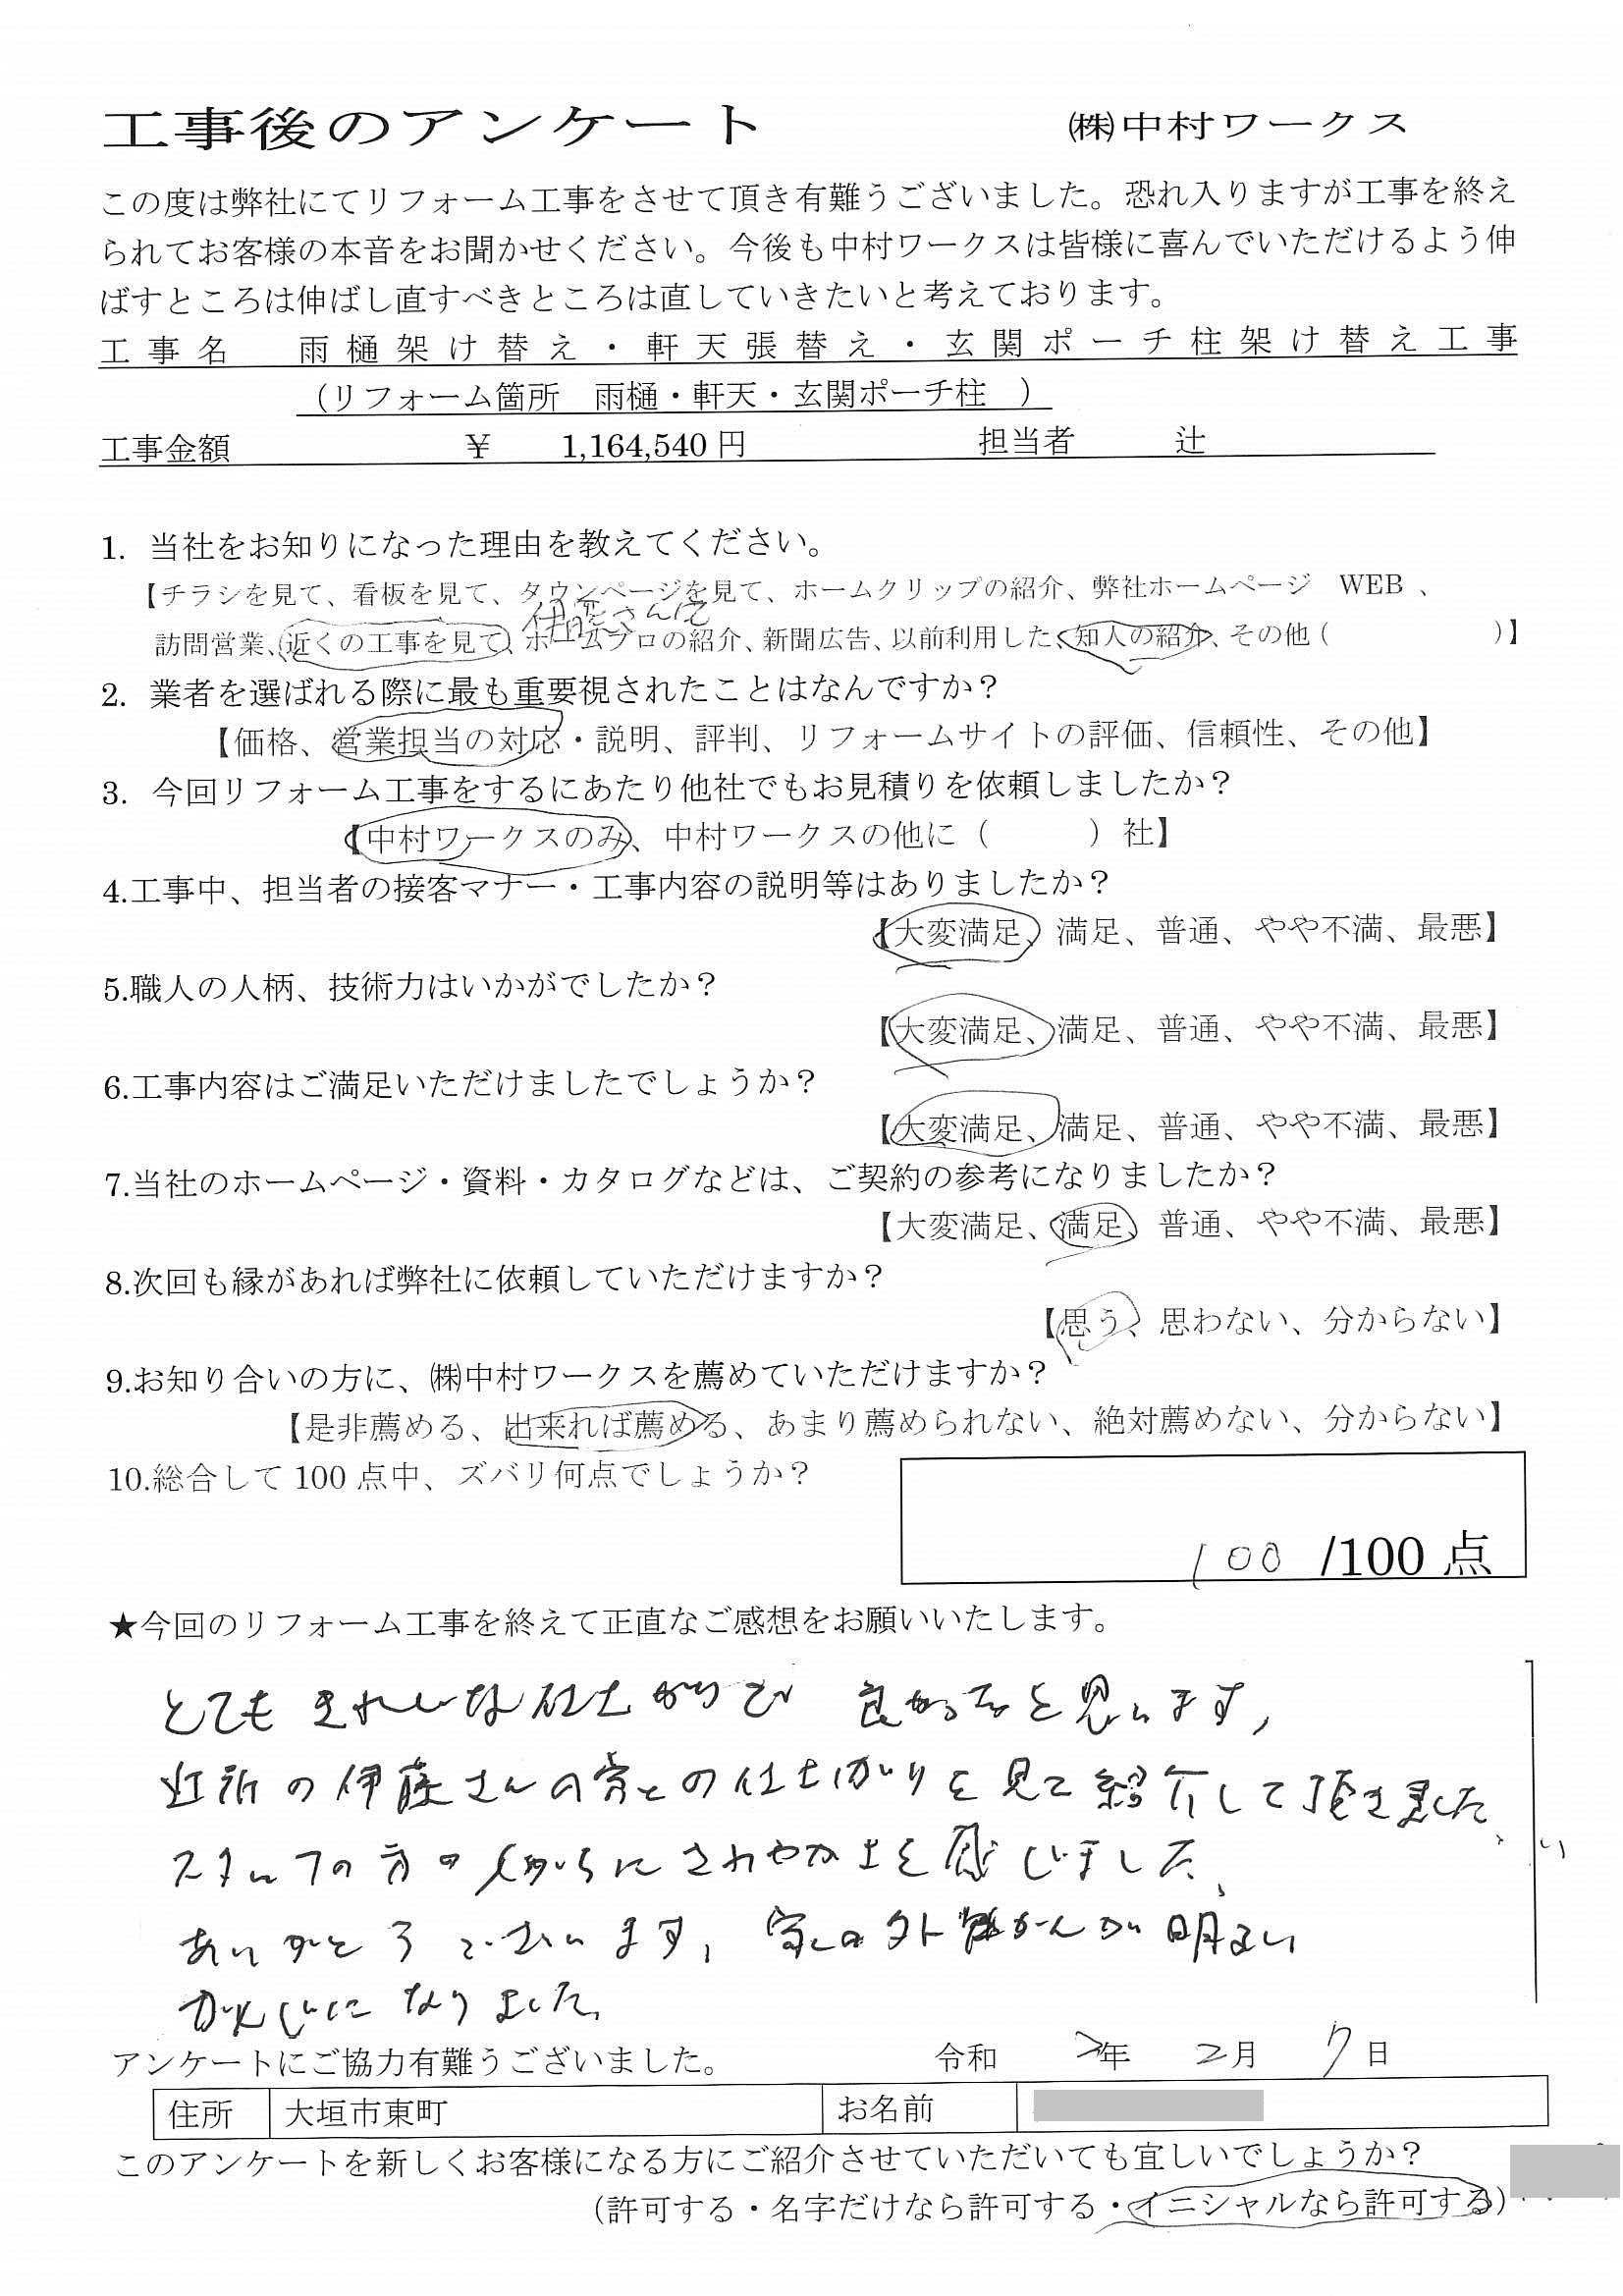 工事後のアンケート ㈱中村ワークス
この度は弊社にてリフォーム工事をさせて頂き有難うございました。恐れ入りますが工事を終え
られてお客様の本音をお聞かせください。今後も中村ワークスは皆様に喜んでいただけるよう伸
ばすところは伸ばし直すべきところは直していきたいと考えております。
工事名 雨樋架け替え・軒天張替え・玄関ポーチ柱架け替え工事
(リフォーム箇所 雨樋・軒天・玄関ポーチ柱 )
工事金額 ¥ 1,164,540円 担当者 辻
1. 当社をお知りになった理由を教えてください。
【チラシを見て、看板を見て、タウンページを見て、ホームクリップの紹介、弊社ホームページ WEB 、
伊藤さん宅
訪問営業、近くの工事を見て、ホームプロの紹介、新聞広告、以前利用した、知人の紹介、その他( )】
2. 業者を選ばれる際に最も重要視されたことはなんですか?
【価格、営業担当の対応・説明、評判、リフォームサイトの評価、信頼性、その他】
3. 今回リフォーム工事をするにあたり他社でもお見積りを依頼しましたか?
【中村ワークスのみ、中村ワークスの他に( )社】
4.工事中、担当者の接客マナー・工事内容の説明等はありましたか?
【大変満足、満足、普通、やや不満、最悪】
5.職人の人柄、技術力はいかがでしたか?
【大変満足、満足、普通、やや不満、最悪】
6.工事内容はご満足いただけましたでしょうか?
【大変満足、満足、普通、やや不満、最悪】
7.当社のホームページ・資料・カタログなどは、ご契約の参考になりましたか?
【大変満足、満足、普通、やや不満、最悪】
8.次回も縁があれば弊社に依頼していただけますか?
【思う、思わない、分からない】
9.お知り合いの方に、㈱中村ワークスを薦めていただけますか?
【是非薦める、出来れば薦める、あまり薦められない、絶対薦めない、分からない】
10.総合して100点中、ズバリ何点でしょうか?
100 /100点
★今回のリフォーム工事を終えて正直なご感想をお願いいたします。
とてもきれいな仕上がりで 良かったと思います。
近所の伊藤さんの家との仕上がりを見て紹介して頂きました、
スタッフの方の人がらにさわやかさを感じました、
ありがとうございます。家の外観かんが明るい
かんじになりました。
アンケートにご協力有難うございました。 令和 2年 2月 7日
住所 大垣市東町 お名前
このアンケートを新しくお客様になる方にご紹介させていただいても宜しいでしょうか?
(許可する・名字だけなら許可する・イニシャルなら許可する)